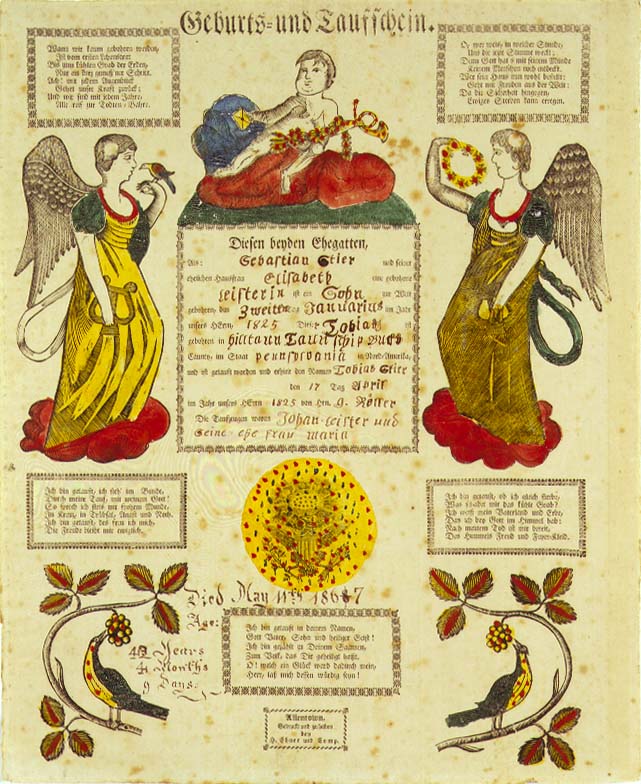 Geburts- und Taufschein.
Wann wir kaum gebohren werden,
Ist vom ersten Lebenstritt
Bis zum kühlen Grab der Erden,
Nur ein kurz gemeßner Schritt.
Ach! mit jedem Augenblick
Gehet unsre Kraft zurück;
Und wir sind mit jedem Jahre,
Allzureif zur Todten-Bahre.
O, wer weis, in welcher Stunde,
Uns die letzte Stimme weckt;
Denn Gott hat's mit seinem Munde
Keinem Menschen noch entdeckt.
Wer sein Haus nun wohl bestellt:
Geht mit Freuden aus der Welt:
Da die Sicherheit hingegen;
Ewiges Sterben kann erregen.
Diesen beyden Ehegatten,
Als: Sebastian Stier und seiner
ehelichen Hausfrau Elisabeth eine gebohrne
leisterin ist ein Sohn zur Welt
gebohren, den Zweiten Tag Januarius im Jahr
unsers HErrn, 1825 Dieser Tobias ist
gebohren in Hilltaun Taunschip Bucks
County, im Staat pennsylvania in Nord-Amerika,
und ist getauft worden und erhielt den Namen Tobias Stier
den 17 Tag April
im Jahr unsers HErrn 1825 von Hrn. g. Röller
Die Taufzeugen waren Johan leister und
Seine ehe frau maria
Ich bin getauft, ich steh' im Bunde,
Durch meine Tauf, mit meinem Gott!
So sprech ich stets mit frohem Munde,
In Kreuz, in Trübsal, Angst und Noth.
Ich bin getauft, des freu ich mich,
Die Freude bleibet mir ewiglich.
Ich bin getauft, ob ich gleich sterbe,
Was schadet mir das kühle Grab?
Ich weiß mein Vaterland und Erbe,
Das ich bey Gott im Himmel hab:
Nach meinem Tod ist mir bereit,
Des Himmels Freud und Feyer-Kleid.
Died May 11th 1867
Age:
42 Years
4 Months
9 Days.
Ich bin getauft in deinem Namen,
Gott Vater, Sohn und heiliger Geist!
Ich bin gezählt zu Deinem Saamen,
Zum Volk, das Dir geheiligt heißt.
O! welch ein Glück ward dadurch mein;
Herr, laß mich dessen würdig seyn!
Allentown,
Gedruckt und zu haben
bey
H. Ebner und Comp.